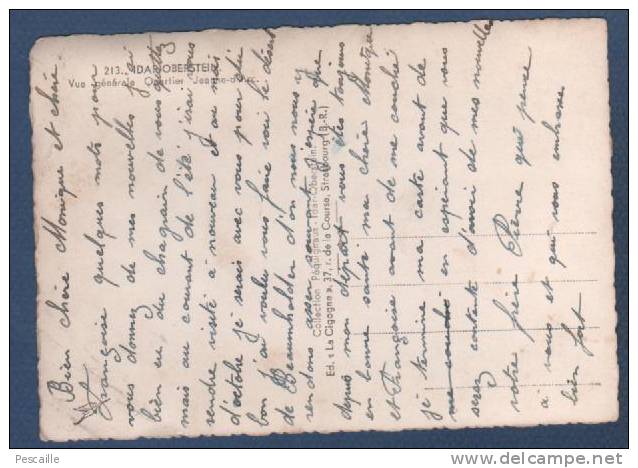 213. IDAR-OBERSTEIN
Vue générale Quartier Jeanne-d'Arc
Collection Péquignaux - Idar-Oberstein.
Ed. « La Cigogne », 37, r. de la Course, Strasbourg (B.-R.)
Bien chère Monique et chère
Françoise quelques mots pour
vous donnez de mes nouvelles j'ai
bien eu du chagrain de vous quitté
mais au courant de l'été j'irai vous
rendre visité à nouveau et au mois
d'octobre je serais avec vous pour
bon j'ai vouler vous faire voir le
de Baumholder d'on nous nous y
rendons assez souvent j'espère que
depuis mon départ vous êtes toujours
en bonne santé ma chère Monique
et Françoise avant de me couché
je termine ma carte avant de
me couché en espériant que vous
serez contente d'avoir de mes nouvelles
votre frère Pierre qui pense
à vous et qui vous embrasse
bien fort
Pescaille
http://www.delcampe.net